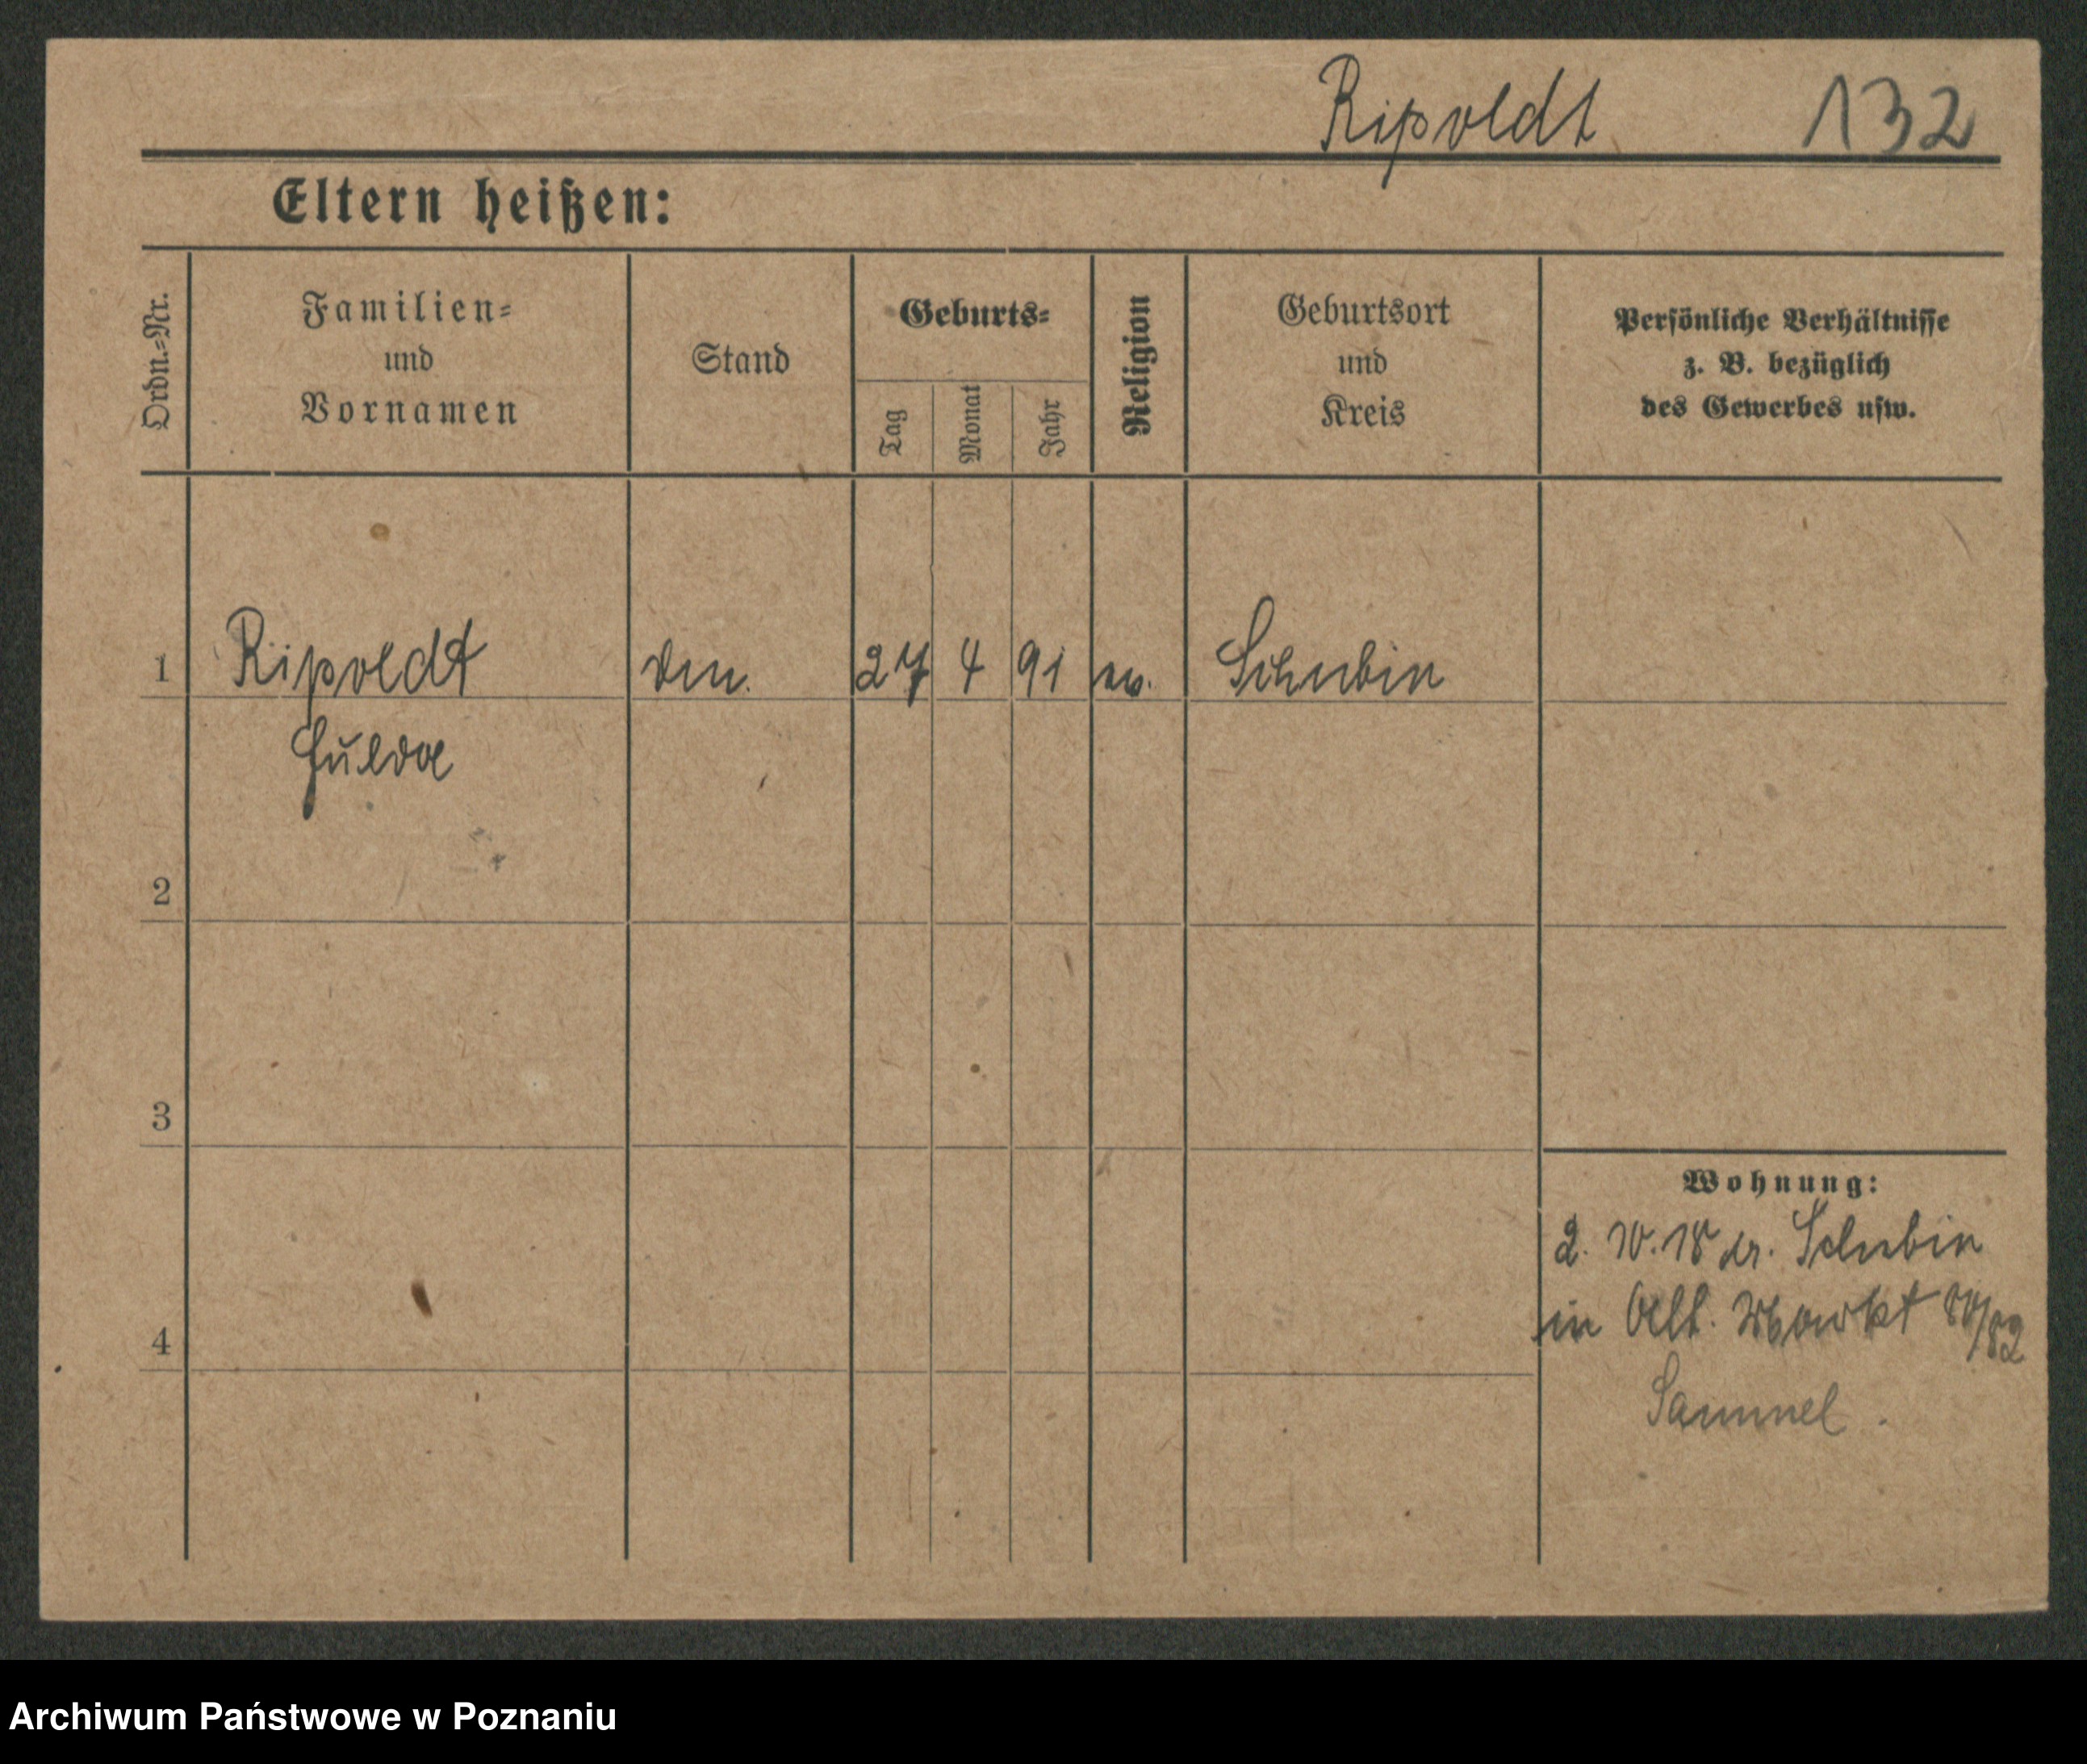 Ripoldt 132
Eltern heißen:
Ordn.=Nr.
Familien=
und
Vornamen
Stand
Geburts=
Tag
Monat
Jahr
Religion
Geburtsort
und
Kreis
Persönliche Verhältnisse
z. B. bezüglich
des Gewerbes usw.
1 Ripoldt 27 4 91 ev. Schubin
Hulda
2
3
4
Wohnung:
2. 10. 18 Schubin
in Alt. Markt 80/82
Samuel.
Archiwum Państwowe w Poznaniu